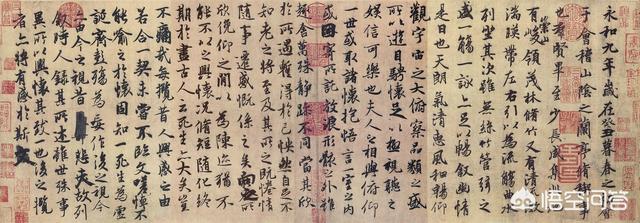 永和九年歲在癸丑暮春之初會
于會稽山陰之蘭亭脩稧事
也群賢畢至少長咸集此地
有崇山峻領茂林脩竹又有清流激
湍暎帶左右引以為流觴曲水
列坐其次雖無絲竹管弦之
盛一觴一詠亦足以暢敘幽情
是日也天朗氣清惠風和暢仰
觀宇宙之大俯察品類之盛
所以遊目騁懷足以極視聽之
娛信可樂也夫人之相與俯仰
一世或取諸懷抱悟言一室之內
或因寄所託放浪形骸之外雖
趣舍萬殊靜躁不同當其欣
於所遇暫得於己快然自足不
知老之將至及其所之既惓情
隨事遷感慨係之矣向之所
欣俛仰之閒以為陳迹猶不
能不以之興懷況脩短隨化終
期於盡古人云死生亦大矣豈
不痛哉每攬昔人興感之由
若合一契未嘗不臨文嗟悼不
能喻之於懷固知一死生為虛
誕齊彭殤為妄作後之視今
亦由今之視昔悲夫故列
敘時人錄其所述雖世殊事
異所以興懷其致一也後之攬
者亦將有感於斯文
悟空问答